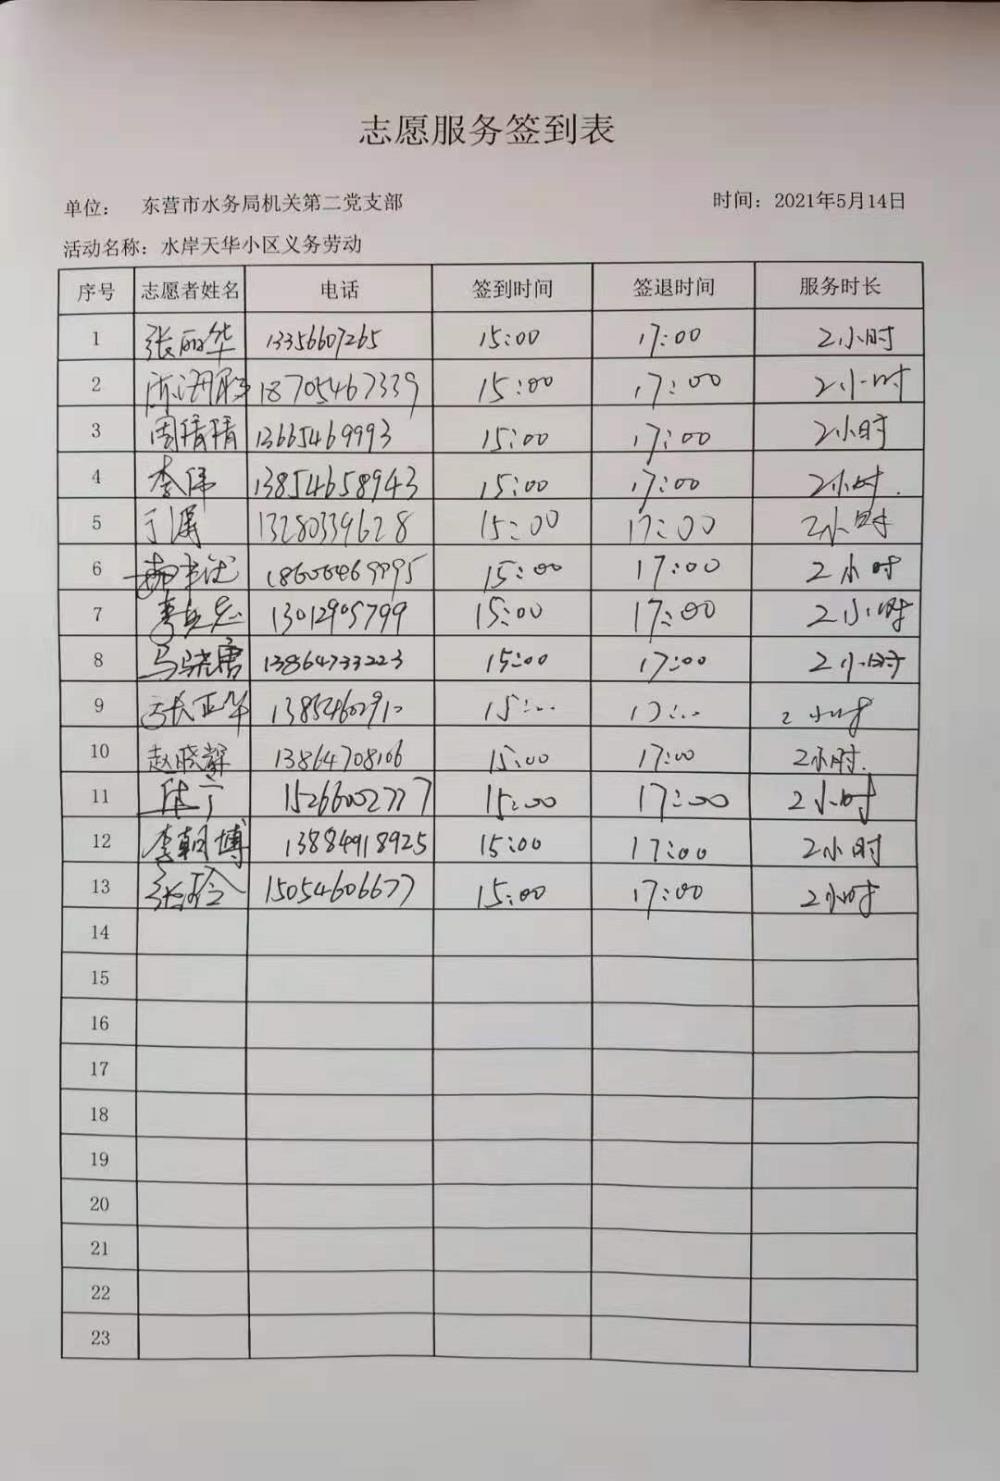 志愿服务签到表
单位： 东营市水务局机关第二党支部 时间：2021年5月14日
活动名称：水岸天华小区义务劳动
序号 志愿者姓名 电话 签到时间 签退时间 服务时长
1 张丽华 13356607265 15:00 17:00 2小时
2 18705467339 15:00 17:00 2小时
3 周倩倩 13665469993 15:00 17:00 2小时
4 李伟 13854658943 15:00 17:00 2小时.
5 13280339628 15:00 17:00 2小时
6 15:00 17:00 2小时
7 13012905799 15:00 17:00 2小时
8 马骁唐 13864733223 15:00 17:00 2小时
9 2小时
10 赵晓 13864708106 15:00 17:00 2小时.
11 15266002777 15:00 17:00 2小时
12 李朝博 13884918925 15:00 17:00 2小时
13 张玲 15054606677 15:00 17:00 2小时
14
15
16
17
18
19
20
21
22
23